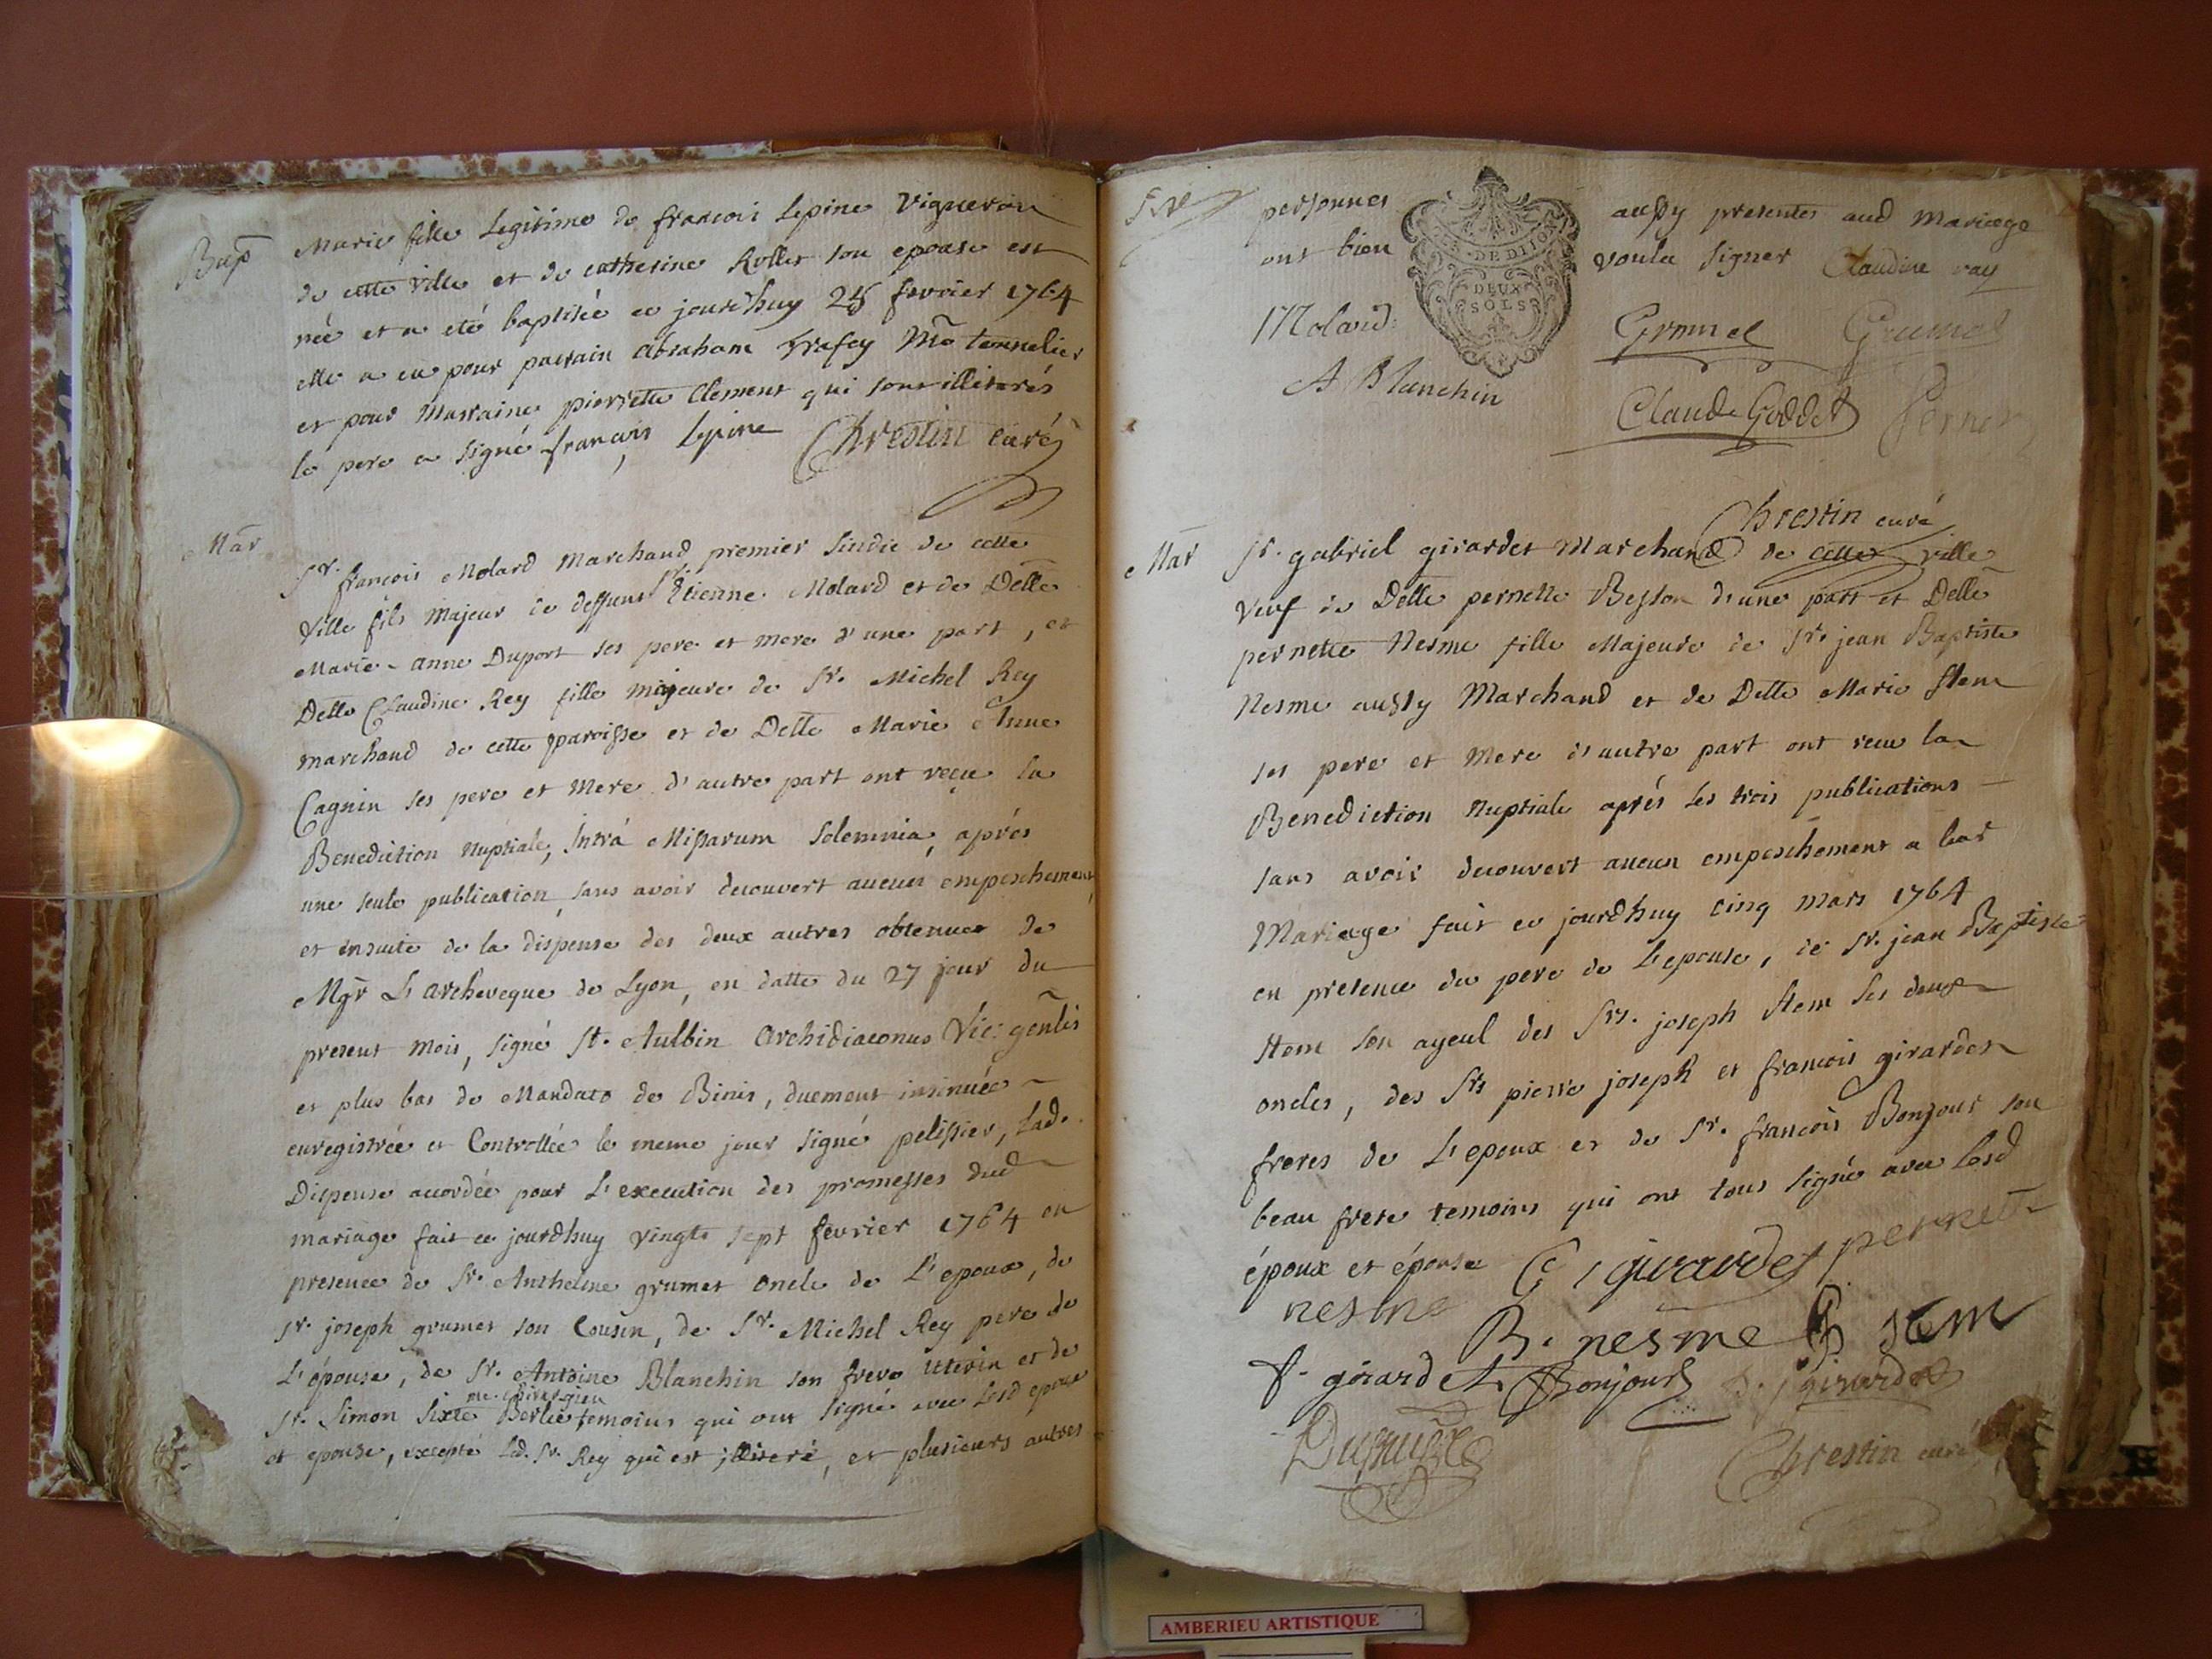 Bap
Marie fille Legitime de francois Lepine Vigneron
de cette ville et de catherine Rollet son epouse est
née et a eté baptisée ce jourdhuy 25 fevrier 1764
elle a eu pour parrain abraham Mre tonnelier
et pour Marraine pierrette Clement qui sont illiterés
le pere a signé françois Lepine Chrestin curé
Mar
Sr. françois Molard Marchand premier sindic de cette
Ville fils Majeur de deffunt Sr. Etienne Molard et de Delle
Marie-anne Duport ses pere et mere d'une part, et
Delle Claudine Rey fille majeure de Sr. Michel Rey
marchand de cette paroisse et de Delle Marie Anne
Cagnin ses pere et Mere d'autre part ont reçu la
Benediction nuptiale, Intrà Missarum solemnia, aprés
une seule publication, sans avoir decouvert aucun empeschement,
et ensuite de la dispense des deux autres obtenues de
Mgr L'archeveque de Lyon, en datte du 27 jour du
present mois, signé St. Aulbin Archidiaconus Vic. gen̄lis
et plus bas de Mandato de Binis, duement insinuée
enregistrée et Controllée le meme jour signé pelissier, lad.
Dispense accordée pour L'execution des promesses dud
mariage fait ce jourdhuy vingt sept fevrier 1764 en
presence de Sr. Anthelme grumet oncle de L'epoux, de
Sr. joseph grumet son Cousin, de Sr. Michel Rey pere de
L'épouse, de Sr. Antoine Blanchin son frere Uterin et de
Sr. Simon Sixte Berlie me. chirurgien temoins qui ont signé avec lesd epoux
et epouse, excepté led. Sr. Rey qui est illiteré, et plusieurs autres
personnes aussy presentes aud Mariage
ont bien voulu signer Claudine ray
DE DIJON
DEUX
SOLS
Molard Grumel Grumel
A Blanchin Claude Goddet
Chrestin curé
Mar
Sr. gabriel girardet Marchand de cette ville
Veuf de Delle pernette Besson d'une part et Delle
pernette Nesme fille Majeure de Sr. jean Baptiste
Nesme aussy Marchand et de Delle Marie Stem
ses pere et Mere d'autre part ont recu la
Benediction Nuptiale aprés les trois publications
sans avoir decouvert aucun empeschement a leur
Mariage fait ce jourdhuy cinq mars 1764
en presence du pere de L'epouse, de Sr. jean Baptiste
Stem son ayeul des Srs. joseph Stem ses deux
oncles, des Srs pierre joseph et francois girardet
freres de L'epoux et de Sr. francois Bonjour son
beau frere temoins qui ont tous signé avec lesd
époux et épouse G girardet pernette
nesme B. nesme stem
f. girardet Bonjour p. j girardet
Dupuy
Chrestin curé
AMBERIEU ARTISTIQUE